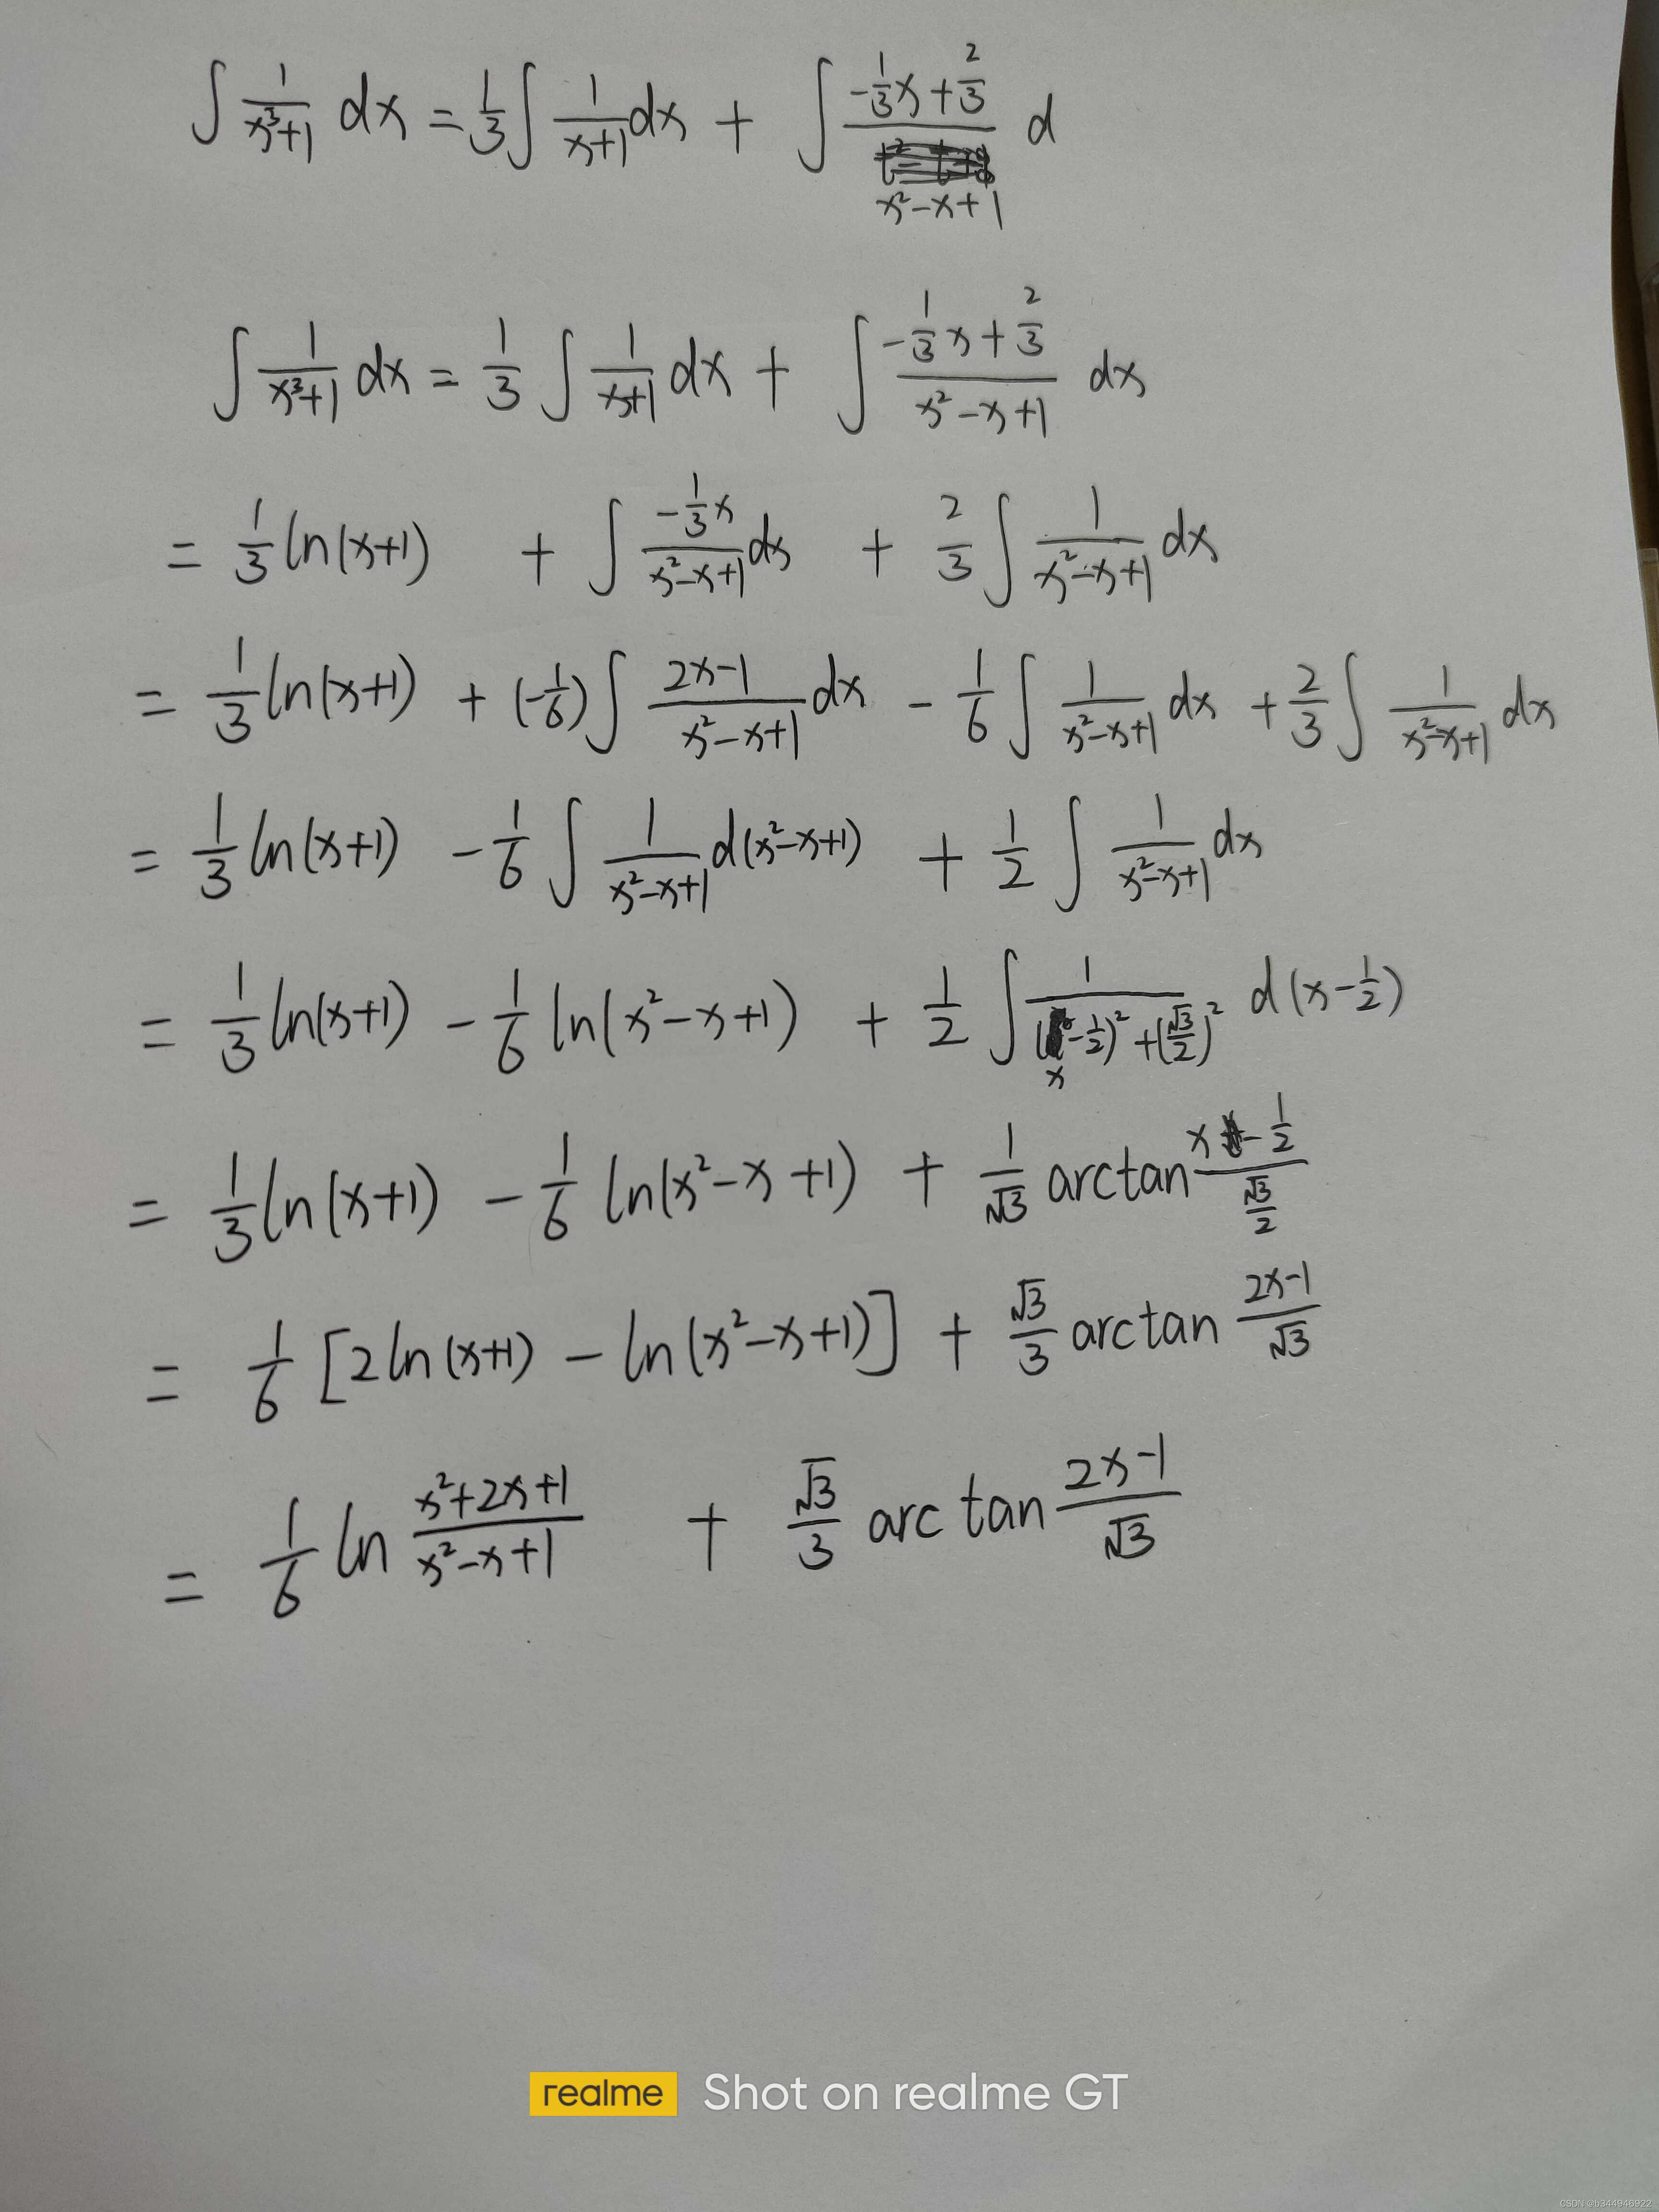 ∫ 1/(x³+1) dx = 1/3 ∫ 1/(x+1) dx + ∫ (-1/3 x + 2/3)/(x²-x+1) d
∫ 1/(x³+1) dx = 1/3 ∫ 1/(x+1) dx + ∫ (-1/3 x + 2/3)/(x²-x+1) dx
= 1/3 ln(x+1) + ∫ (-1/3 x)/(x²-x+1) dx + 2/3 ∫ 1/(x²-x+1) dx
= 1/3 ln(x+1) + (-1/6) ∫ (2x-1)/(x²-x+1) dx - 1/6 ∫ 1/(x²-x+1) dx + 2/3 ∫ 1/(x²-x+1) dx
= 1/3 ln(x+1) - 1/6 ∫ 1/(x²-x+1) d(x²-x+1) + 1/2 ∫ 1/(x²-x+1) dx
= 1/3 ln(x+1) - 1/6 ln(x²-x+1) + 1/2 ∫ 1/((x-1/2)²+(√3/2)²) d(x-1/2)
= 1/3 ln(x+1) - 1/6 ln(x²-x+1) + 1/√3 arctan (x-1/2)/(√3/2)
= 1/6 [2ln(x+1) - ln(x²-x+1)] + √3/3 arctan (2x-1)/√3
= 1/6 ln (x²+2x+1)/(x²-x+1) + √3/3 arctan (2x-1)/√3
realme Shot on realme GT
CSDN @b344946922